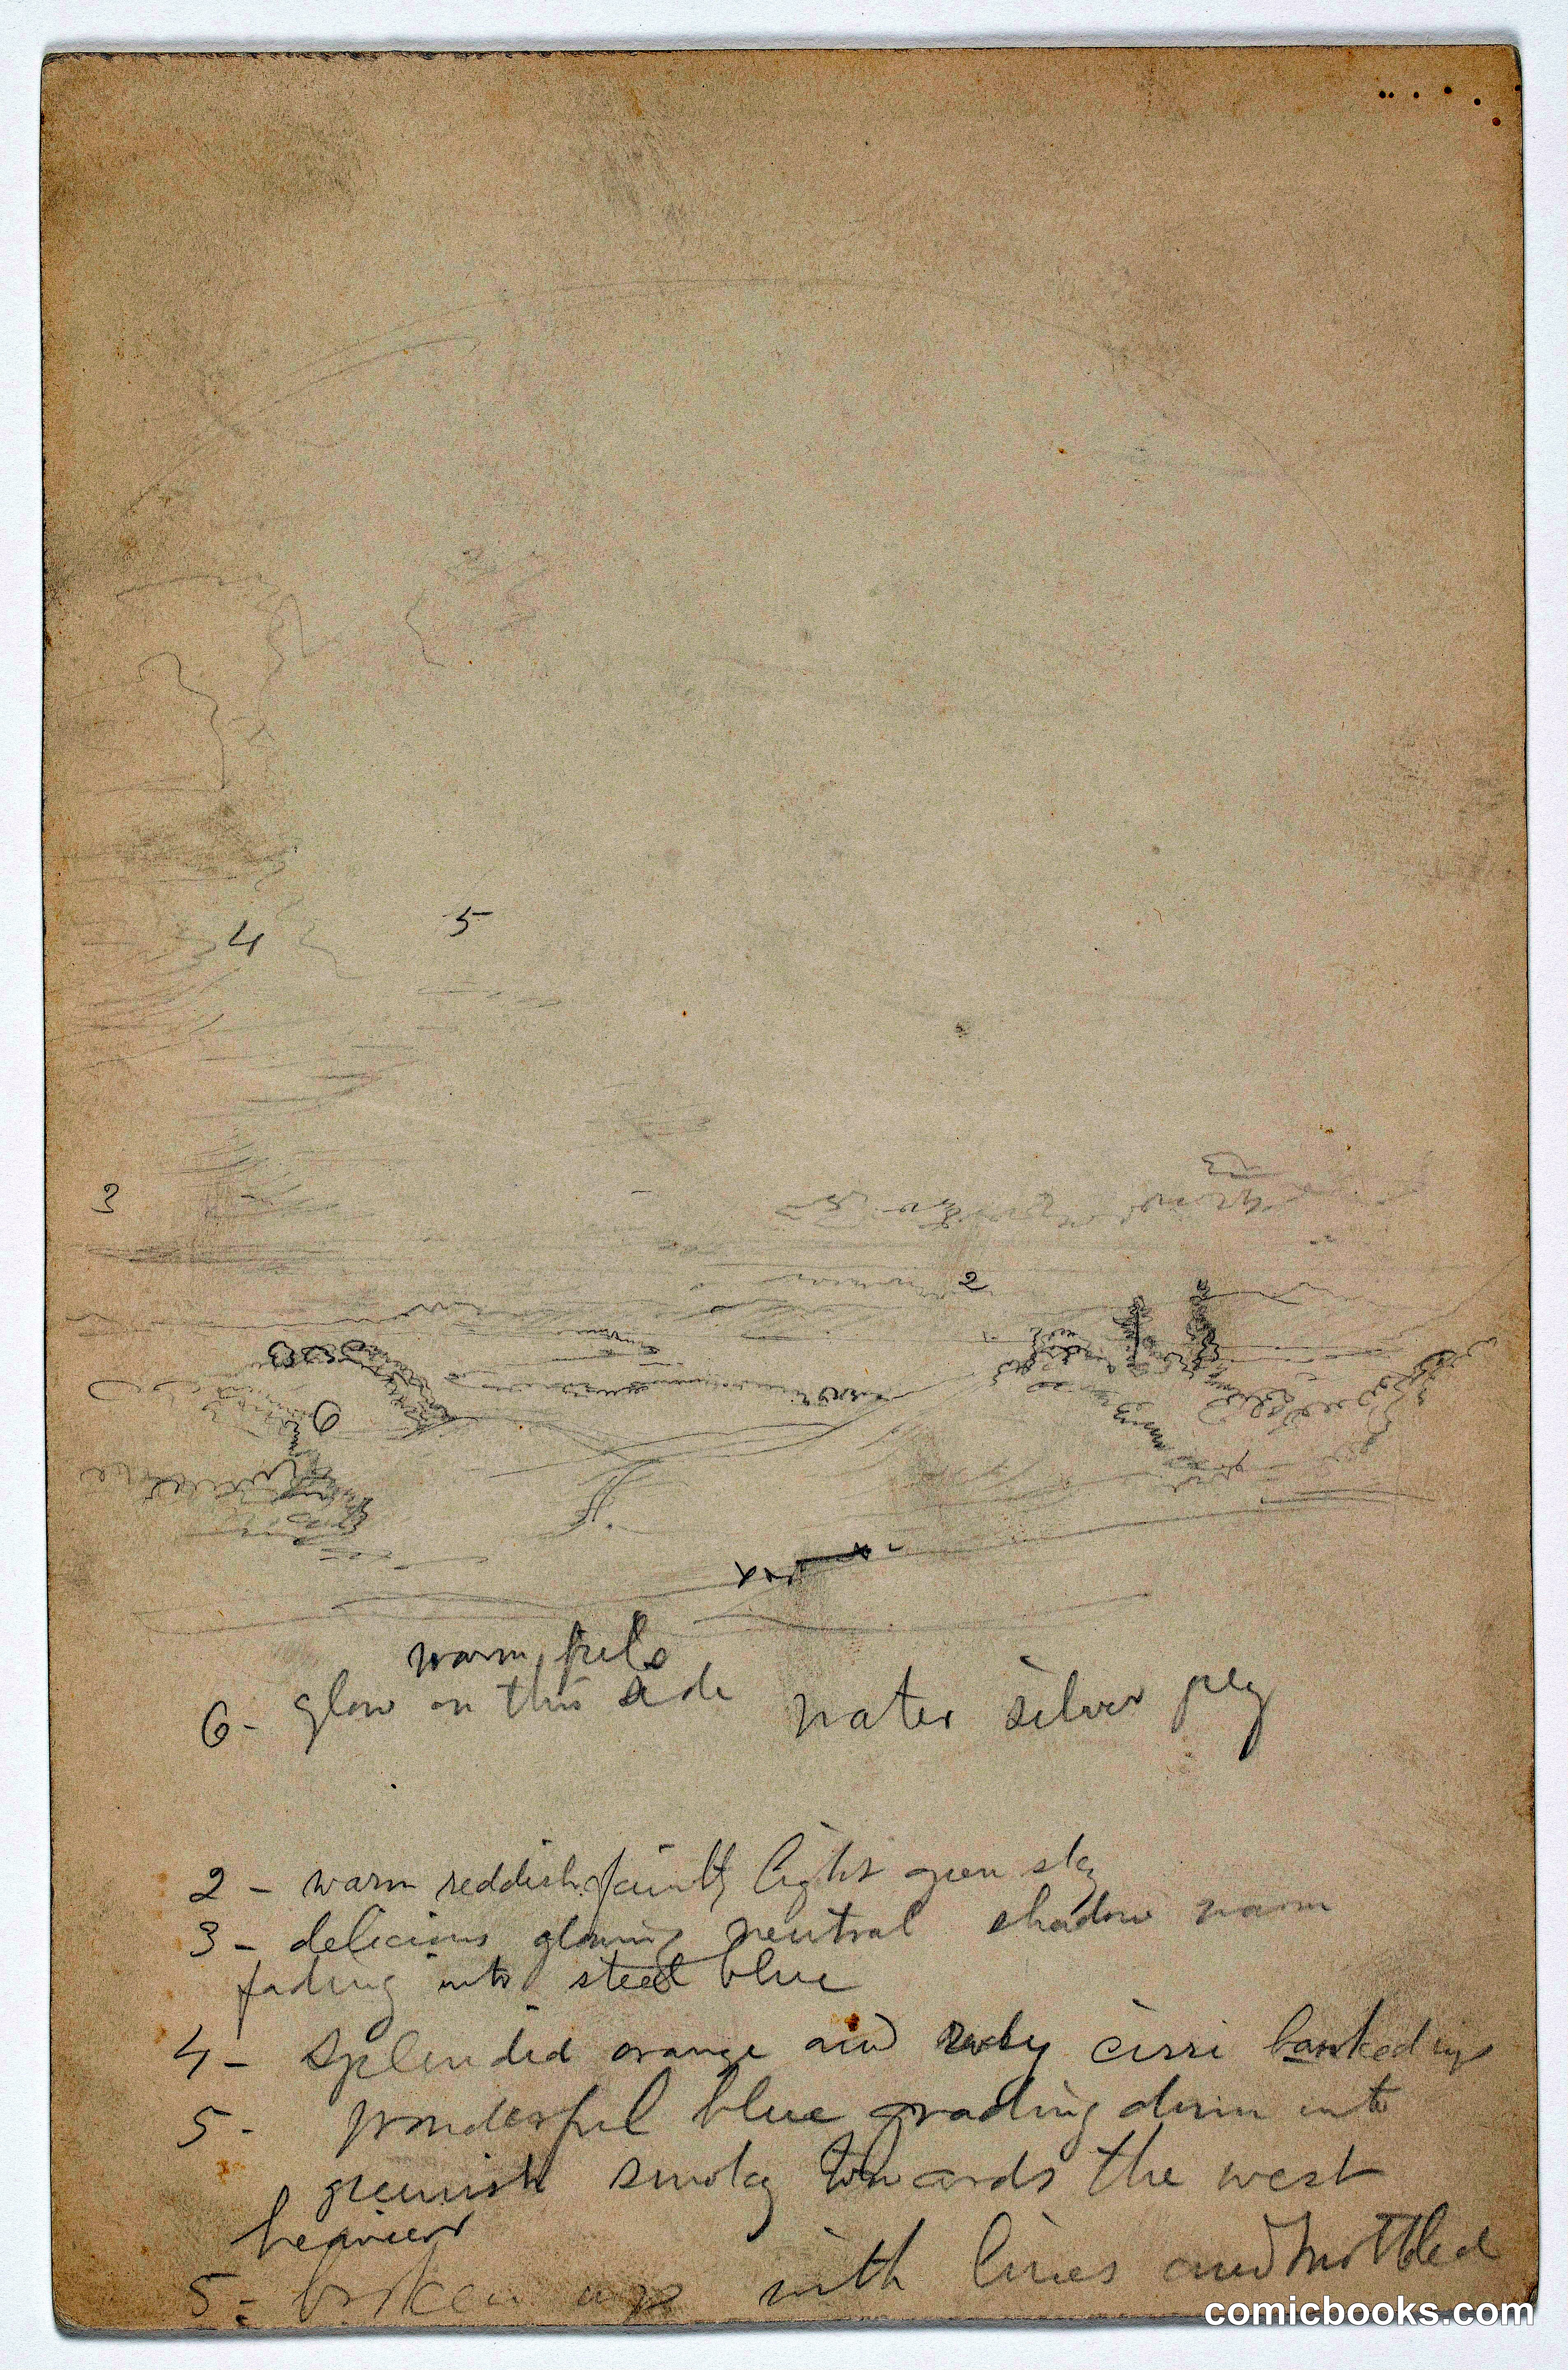 4 5
3
2
6
warm
6 - glow on this side water silver
2 - warm reddish faintly light green sky
3 - delicious glowing neutral shadow warm
fading into steel blue
4 - splendid orange and ruby cirri banked up
5 - wonderful blue grading down into
greenish smoky towards the west
heavier
5 - broken up with lines and mottled
comicbooks.com